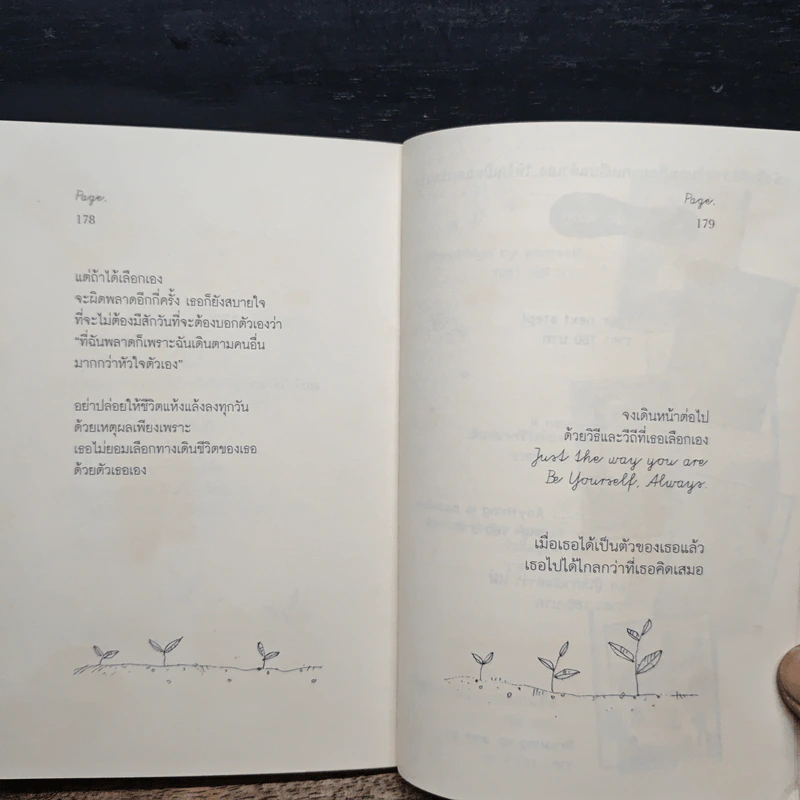 Page.
178
แต่ถ้าได้เลือกเอง
จะผิดพลาดอีกกี่ครั้ง เธอก็ยังสบายใจ
ที่จะไม่ต้องมีสักวันที่จะต้องบอกตัวเองว่า
“ที่ฉันพลาดก็เพราะฉันเดินตามคนอื่น
มากกว่าหัวใจตัวเอง”
อย่าปล่อยให้ชีวิตแห้งแล้งลงทุกวัน
ด้วยเหตุผลเพียงเพราะ
เธอไม่ยอมเลือกทางเดินชีวิตของเธอ
ด้วยตัวเธอเอง
Page.
179
จงเดินหน้าต่อไป
ด้วยวิธีและวิถีที่เธอเลือกเอง
Just the way you are
Be Yourself, Always.
เมื่อเธอได้เป็นตัวของเธอแล้ว
เธอไปได้ไกลกว่าที่เธอคิดเสมอ